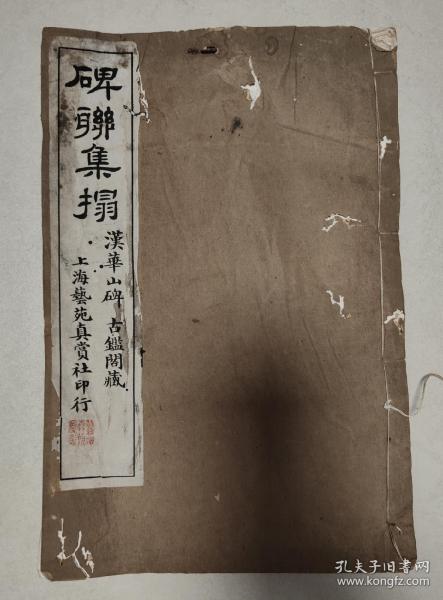 碑聯集搨
漢華山碑 古鑑閣藏
上海藝苑真賞社印行
孔夫子旧书网
www.kongfz.com